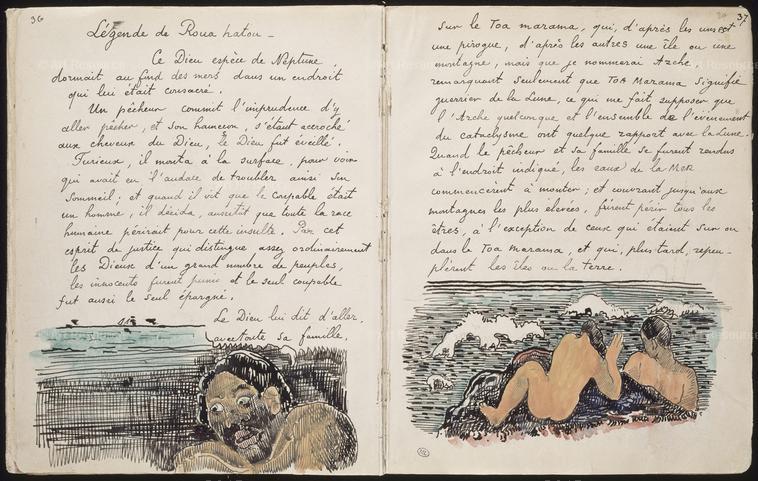 36
Légende de Roua hatou —
Ce Dieu espèce de Neptune
dormait au find des mers dans un endroit
qui lui était consacré.
Un pêcheur commit l'imprudence d'y
aller pêcher, et son hameçon s'étant accroché
aux cheveux du Dieu, le Dieu fut éveillé.
Furieux, il monta à la surface pour voir
qui avait eu l'audace de troubler ainsi son
sommeil; et quand il vit que le coupable était
un homme, il décida aussitôt que toute la race
humaine périrait pour cette insulte. Par cet
esprit de justice qui distingue assez ordinairement
les Dieux d'un grand nombre de peuples,
les innocents furent punis et le seul coupable
fut aussi le seul épargné.
Le Dieu lui dit d'aller,
avec toute sa famille,
37
Sur le Toa marama, qui, d'après les uns est
une pirogue, d'après les autres une île ou une
montagne, mais que je nommerai Arche
remarquant seulement que Toa Marama signifie
guerrier de la Lune, ce qui me fait supposer que
l'Arche quelconque et l'ensemble de l'évènement
du cataclysme ont quelque rapport avec la Lune.
Quand le pêcheur et sa famille se furent rendus
à l'endroit indiqué, les eaux de la Mer
commencèrent à monter; et couvrant jusqu'aux
montagnes les plus élevées, firent périr tous les
êtres, à l'exception de ceux qui étaient sur ou
dans le Toa marama, et qui, plus tard, repeu-
plèrent les îles ou la terre.